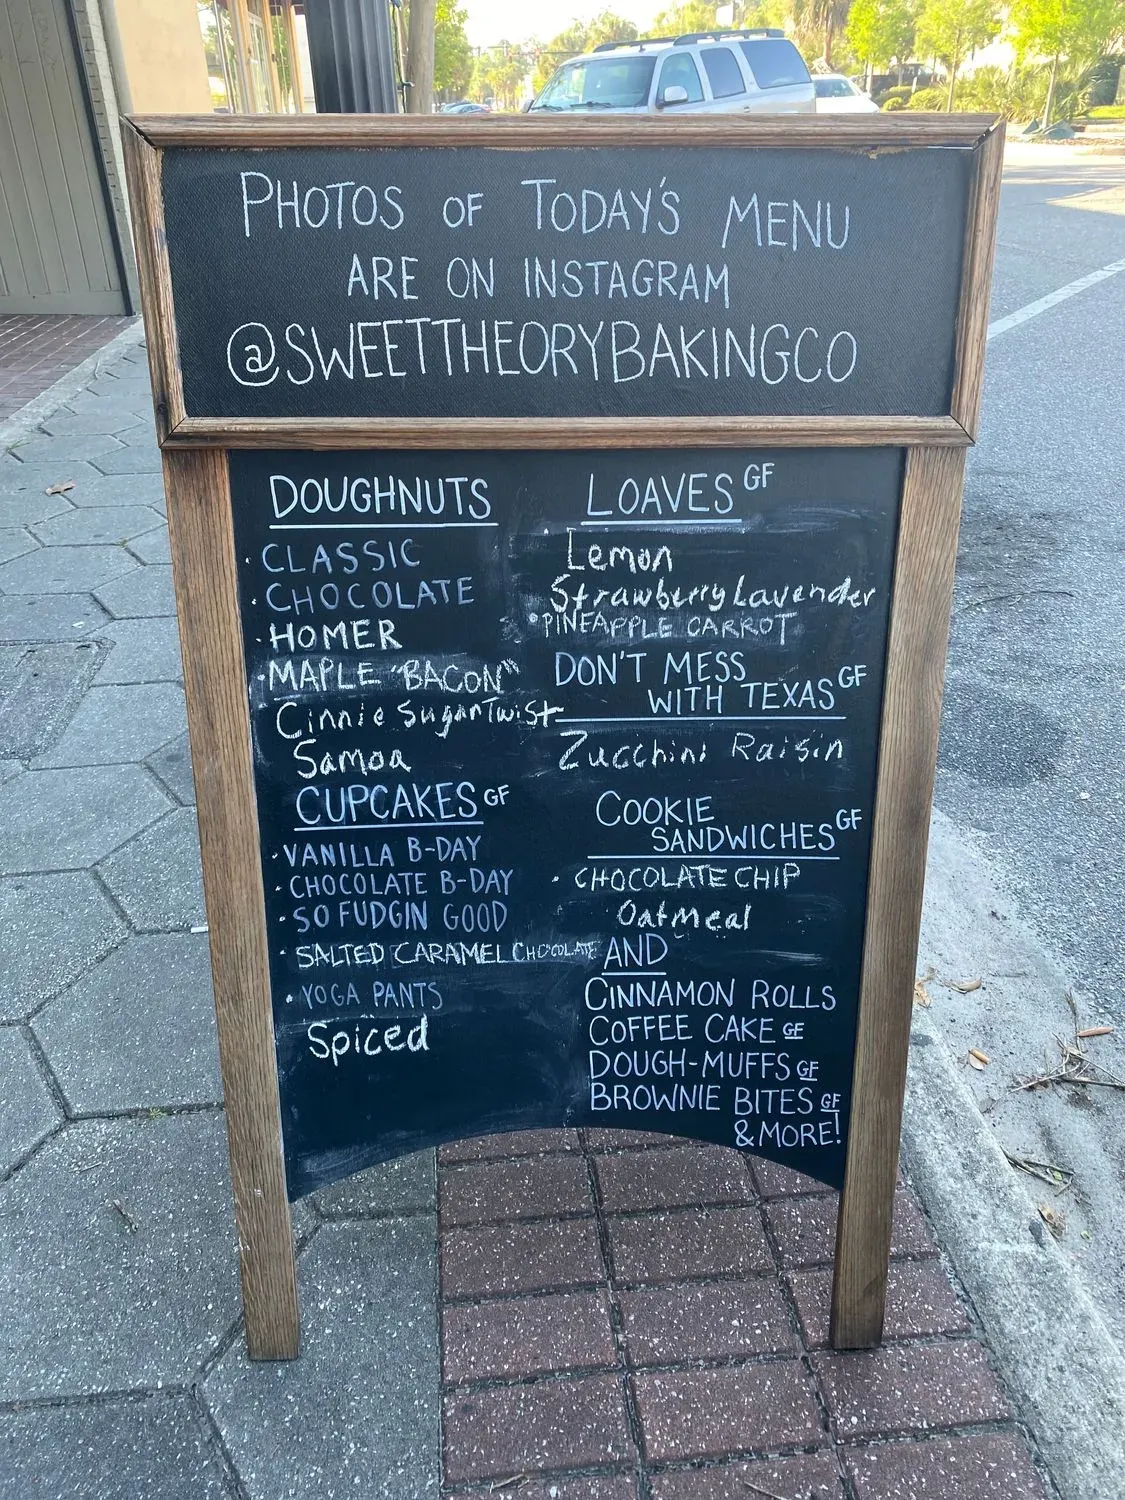 PHOTOS OF TODAY'S MENU
ARE ON INSTAGRAM
@SWEETTHEORYBAKINGCO
DOUGHNUTS
· CLASSIC
· CHOCOLATE
· HOMER
· MAPLE "BACON"
Cinnie Sugar Twist
Samoa
CUPCAKES GF
· VANILLA B-DAY
· CHOCOLATE B-DAY
· SO FUDGIN GOOD
· SALTED CARAMEL CHOCOLATE
· YOGA PANTS
Spiced
LOAVES GF
Lemon
Strawberry Lavender
· PINEAPPLE CARROT
DON'T MESS
WITH TEXAS GF
Zucchini Raisin
COOKIE
SANDWICHES GF
· CHOCOLATE CHIP
Oatmeal
AND
CINNAMON ROLLS
COFFEE CAKE GF
DOUGH-MUFFS GF
BROWNIE BITES GF
& MORE!